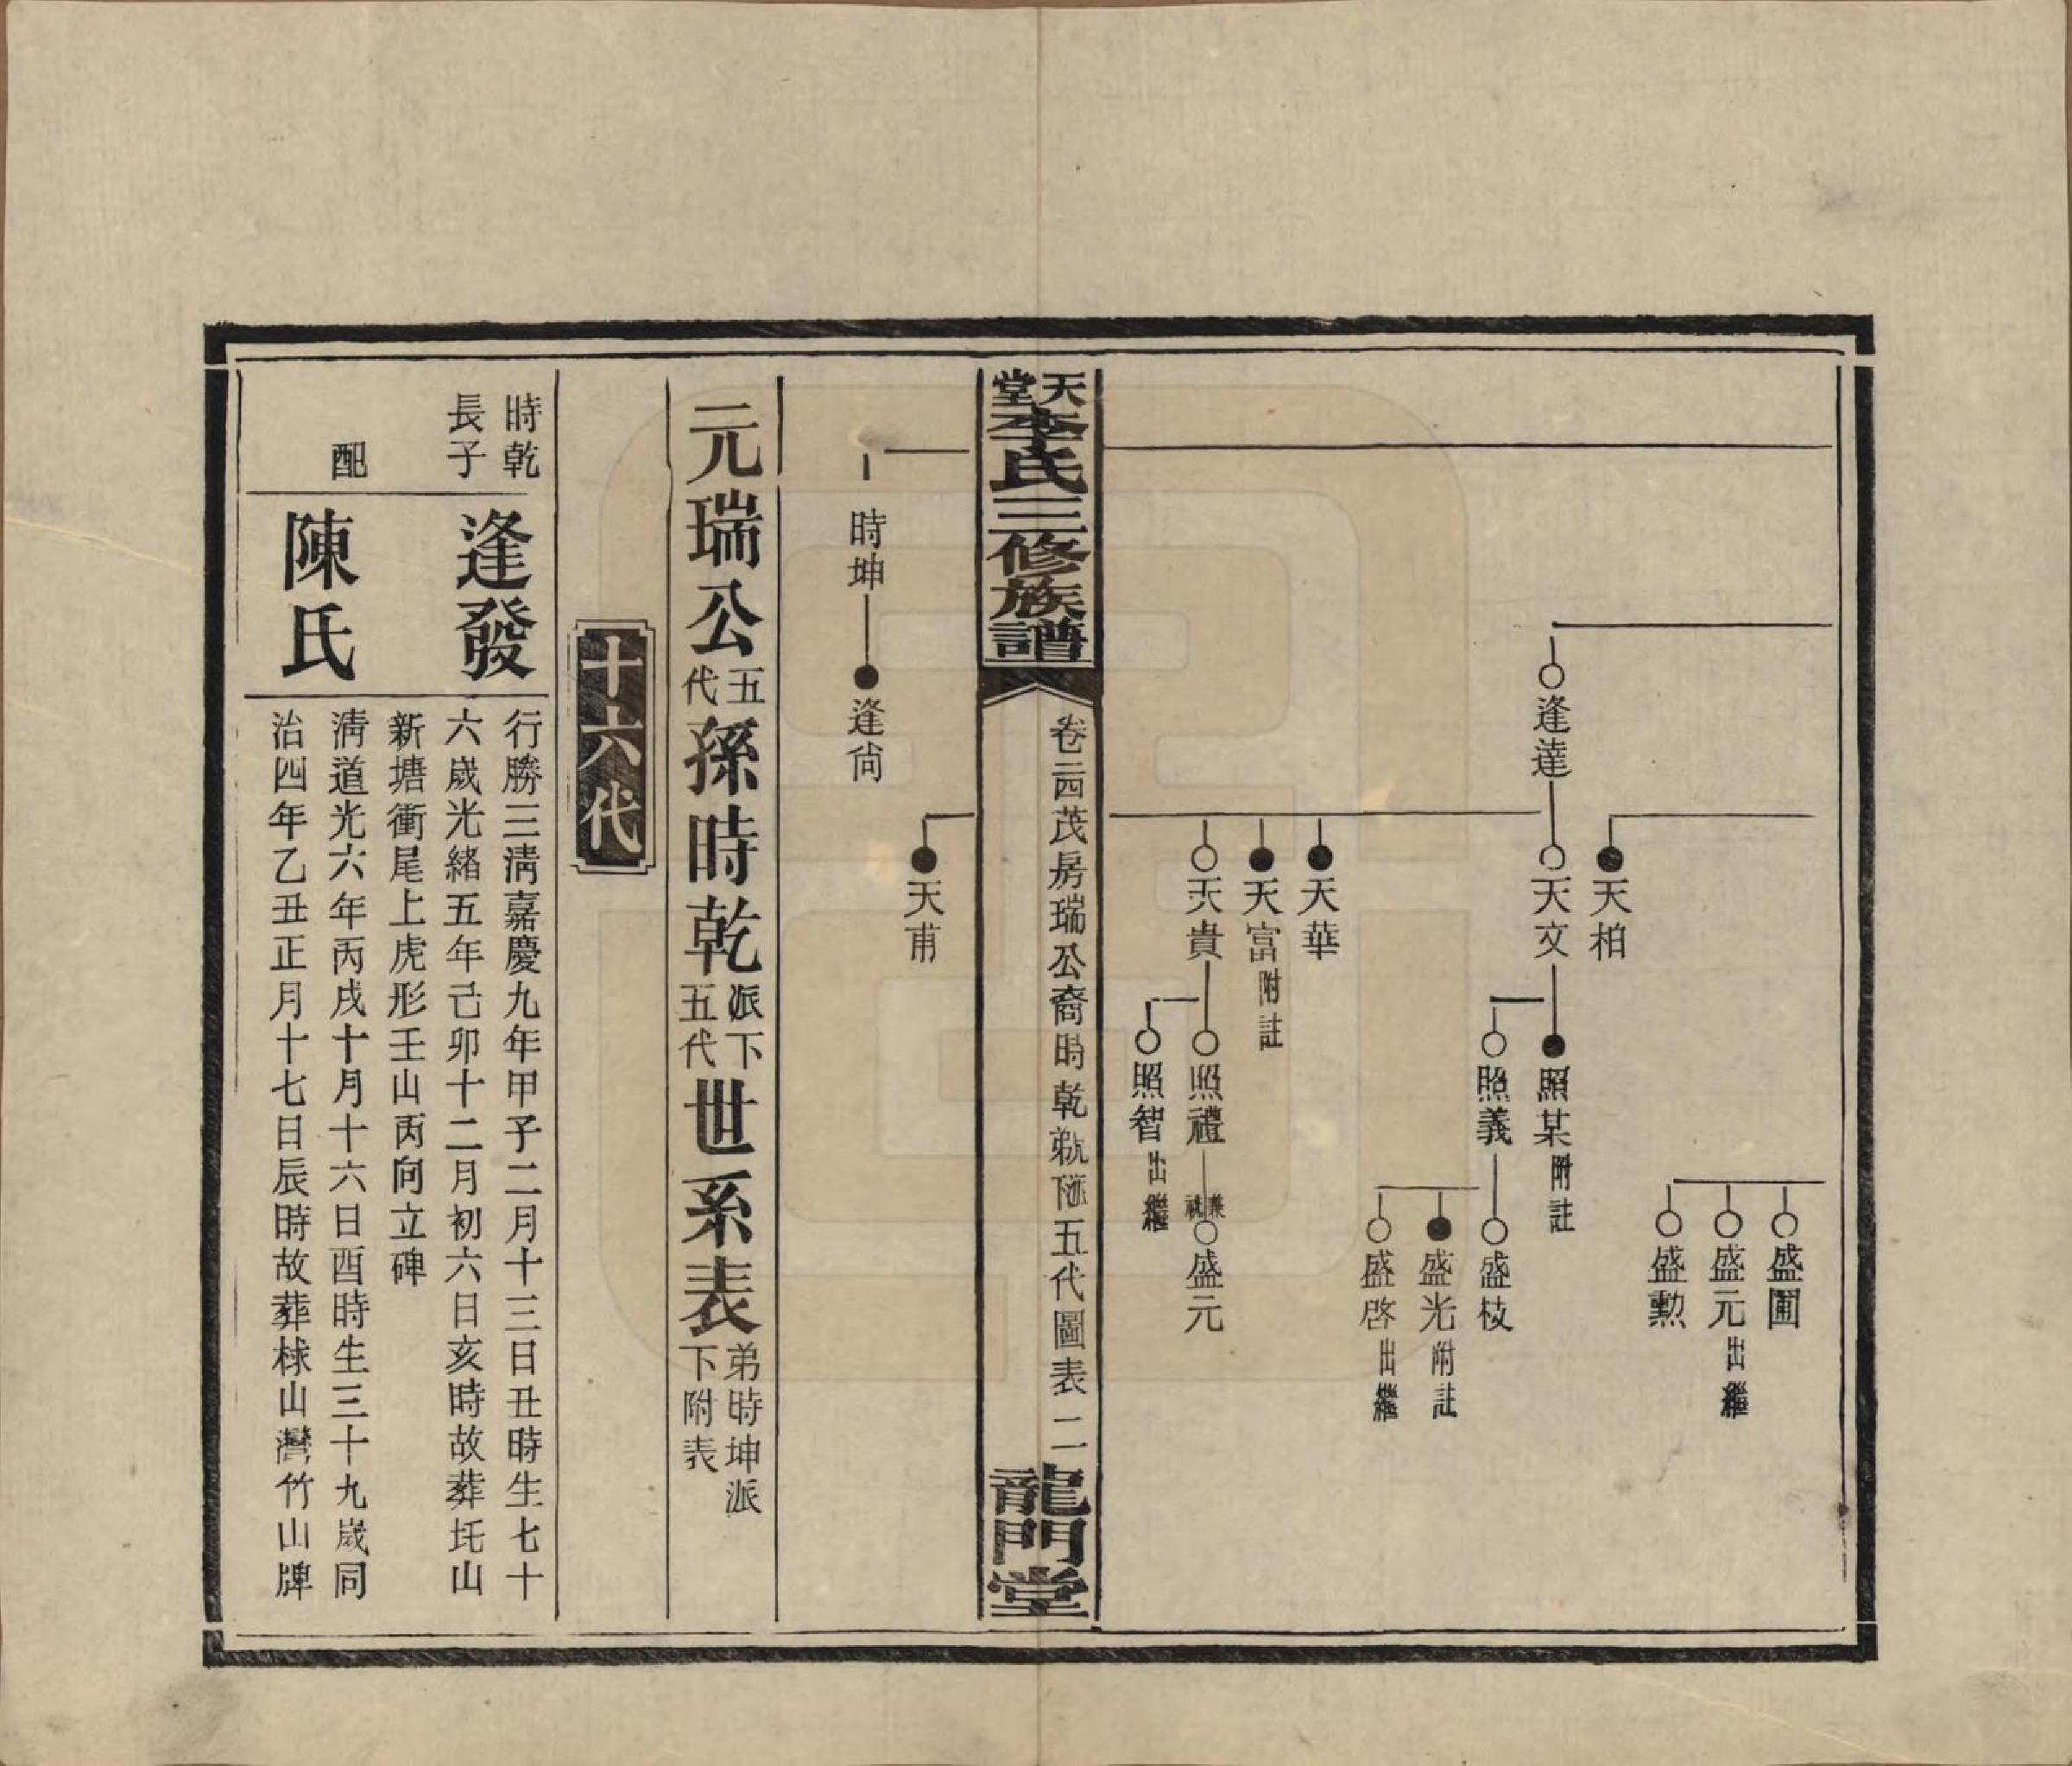 盛圃
盛元出繼
盛勳
天柏
逢達
天文
照某附註
照義
盛枝
盛光附註
盛啓出繼
天華
天富附註
天貴
照禮
盛元
照智出繼
天堂李氏三修族譜
卷二四茂房瑞公裔時乾 五代圖表 二
龍門堂
天甫
時坤
逢尚
元瑞公五代孫時乾派下五代世系表弟時坤派下附表
十六代
時乾長子
逢發
行勝三淸嘉慶九年甲子二月十三日丑時生七十
六歲光緒五年己卯十二月初六日亥時故葬圫山
新塘衝尾上虎形壬山丙向立碑
配
陳氏
淸道光六年丙戌十月十六日酉時生三十九歲同
治四年乙丑正月十七日辰時故葬梂山灣竹山牌